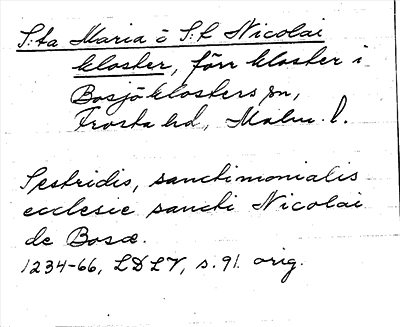 S:ta Maria o S:t Nicolai
kloster, förr kloster i
Bosjöklosters sn,
Frosta hd, Malm. l.
Sestridis, sanctimonialis
ecclesie sancti Nicolai
de Bosœ.
1234-66, LDLV, s. 91. orig.